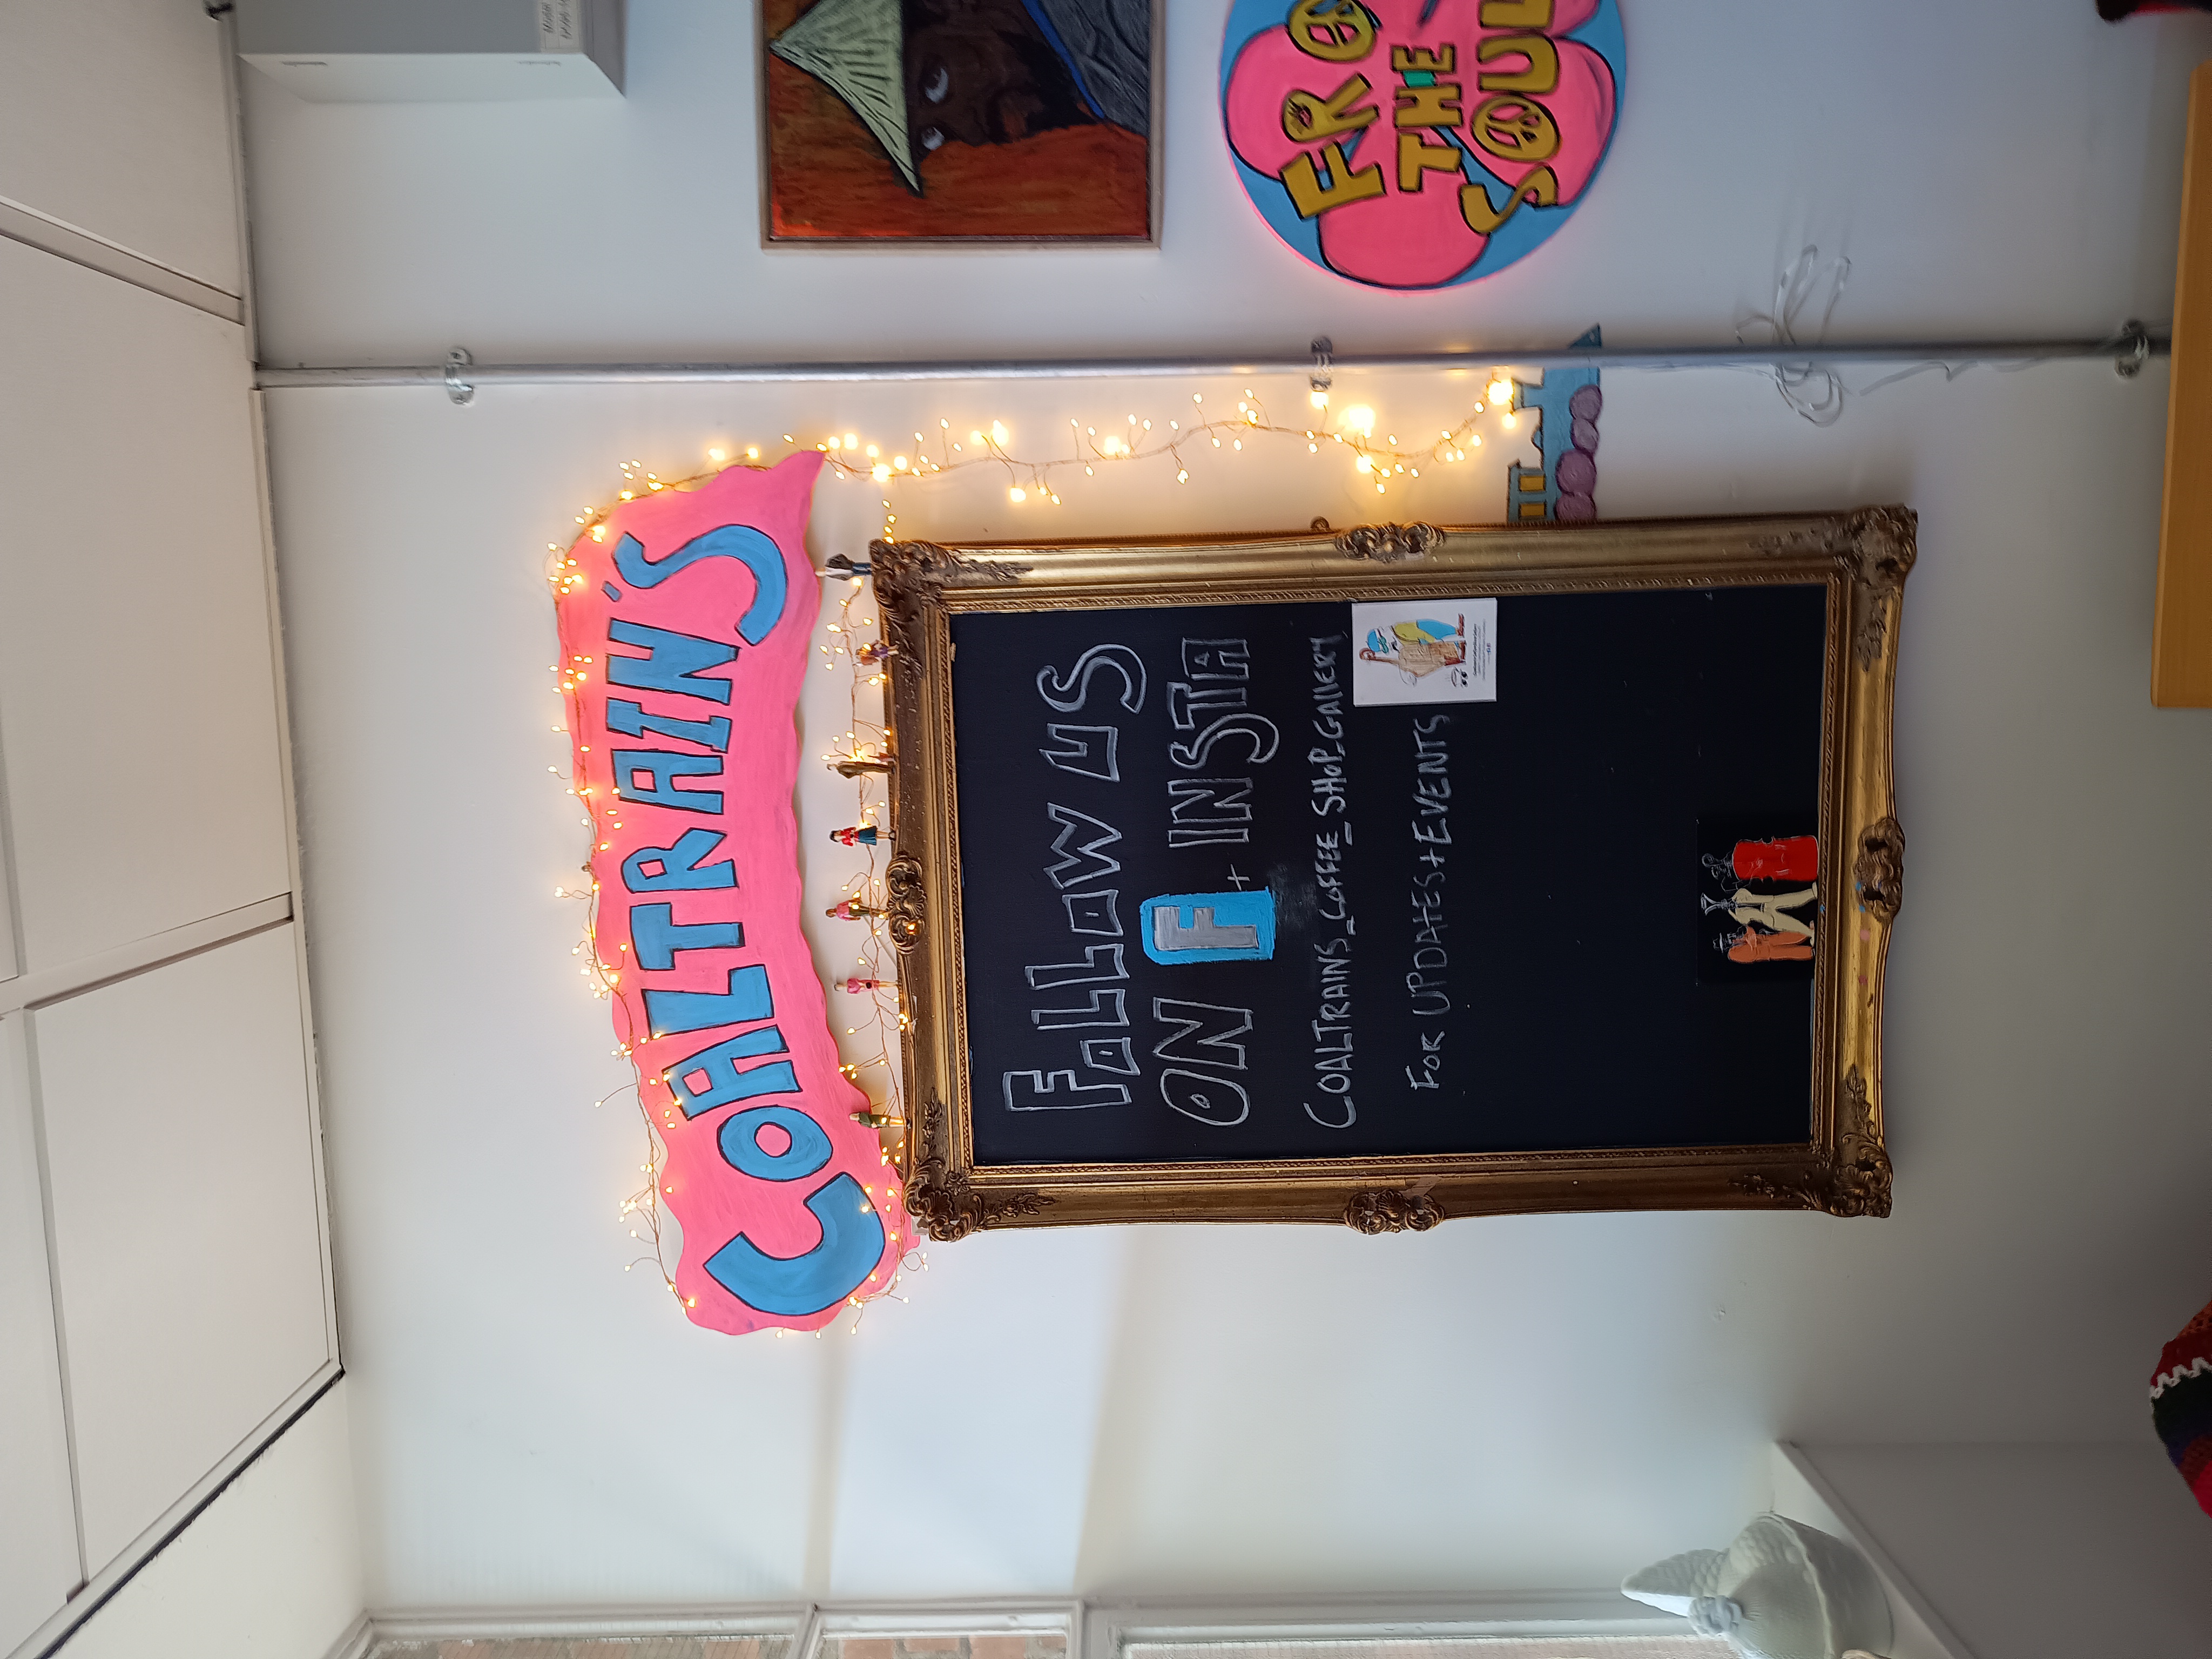 COALTRAIN'S
FOLLOW US
ON F + INSTA
COALTRAINS_COFFEE_SHOP_GALLERY
FOR UPDATES + EVENTS
FRO
THE
SOUL